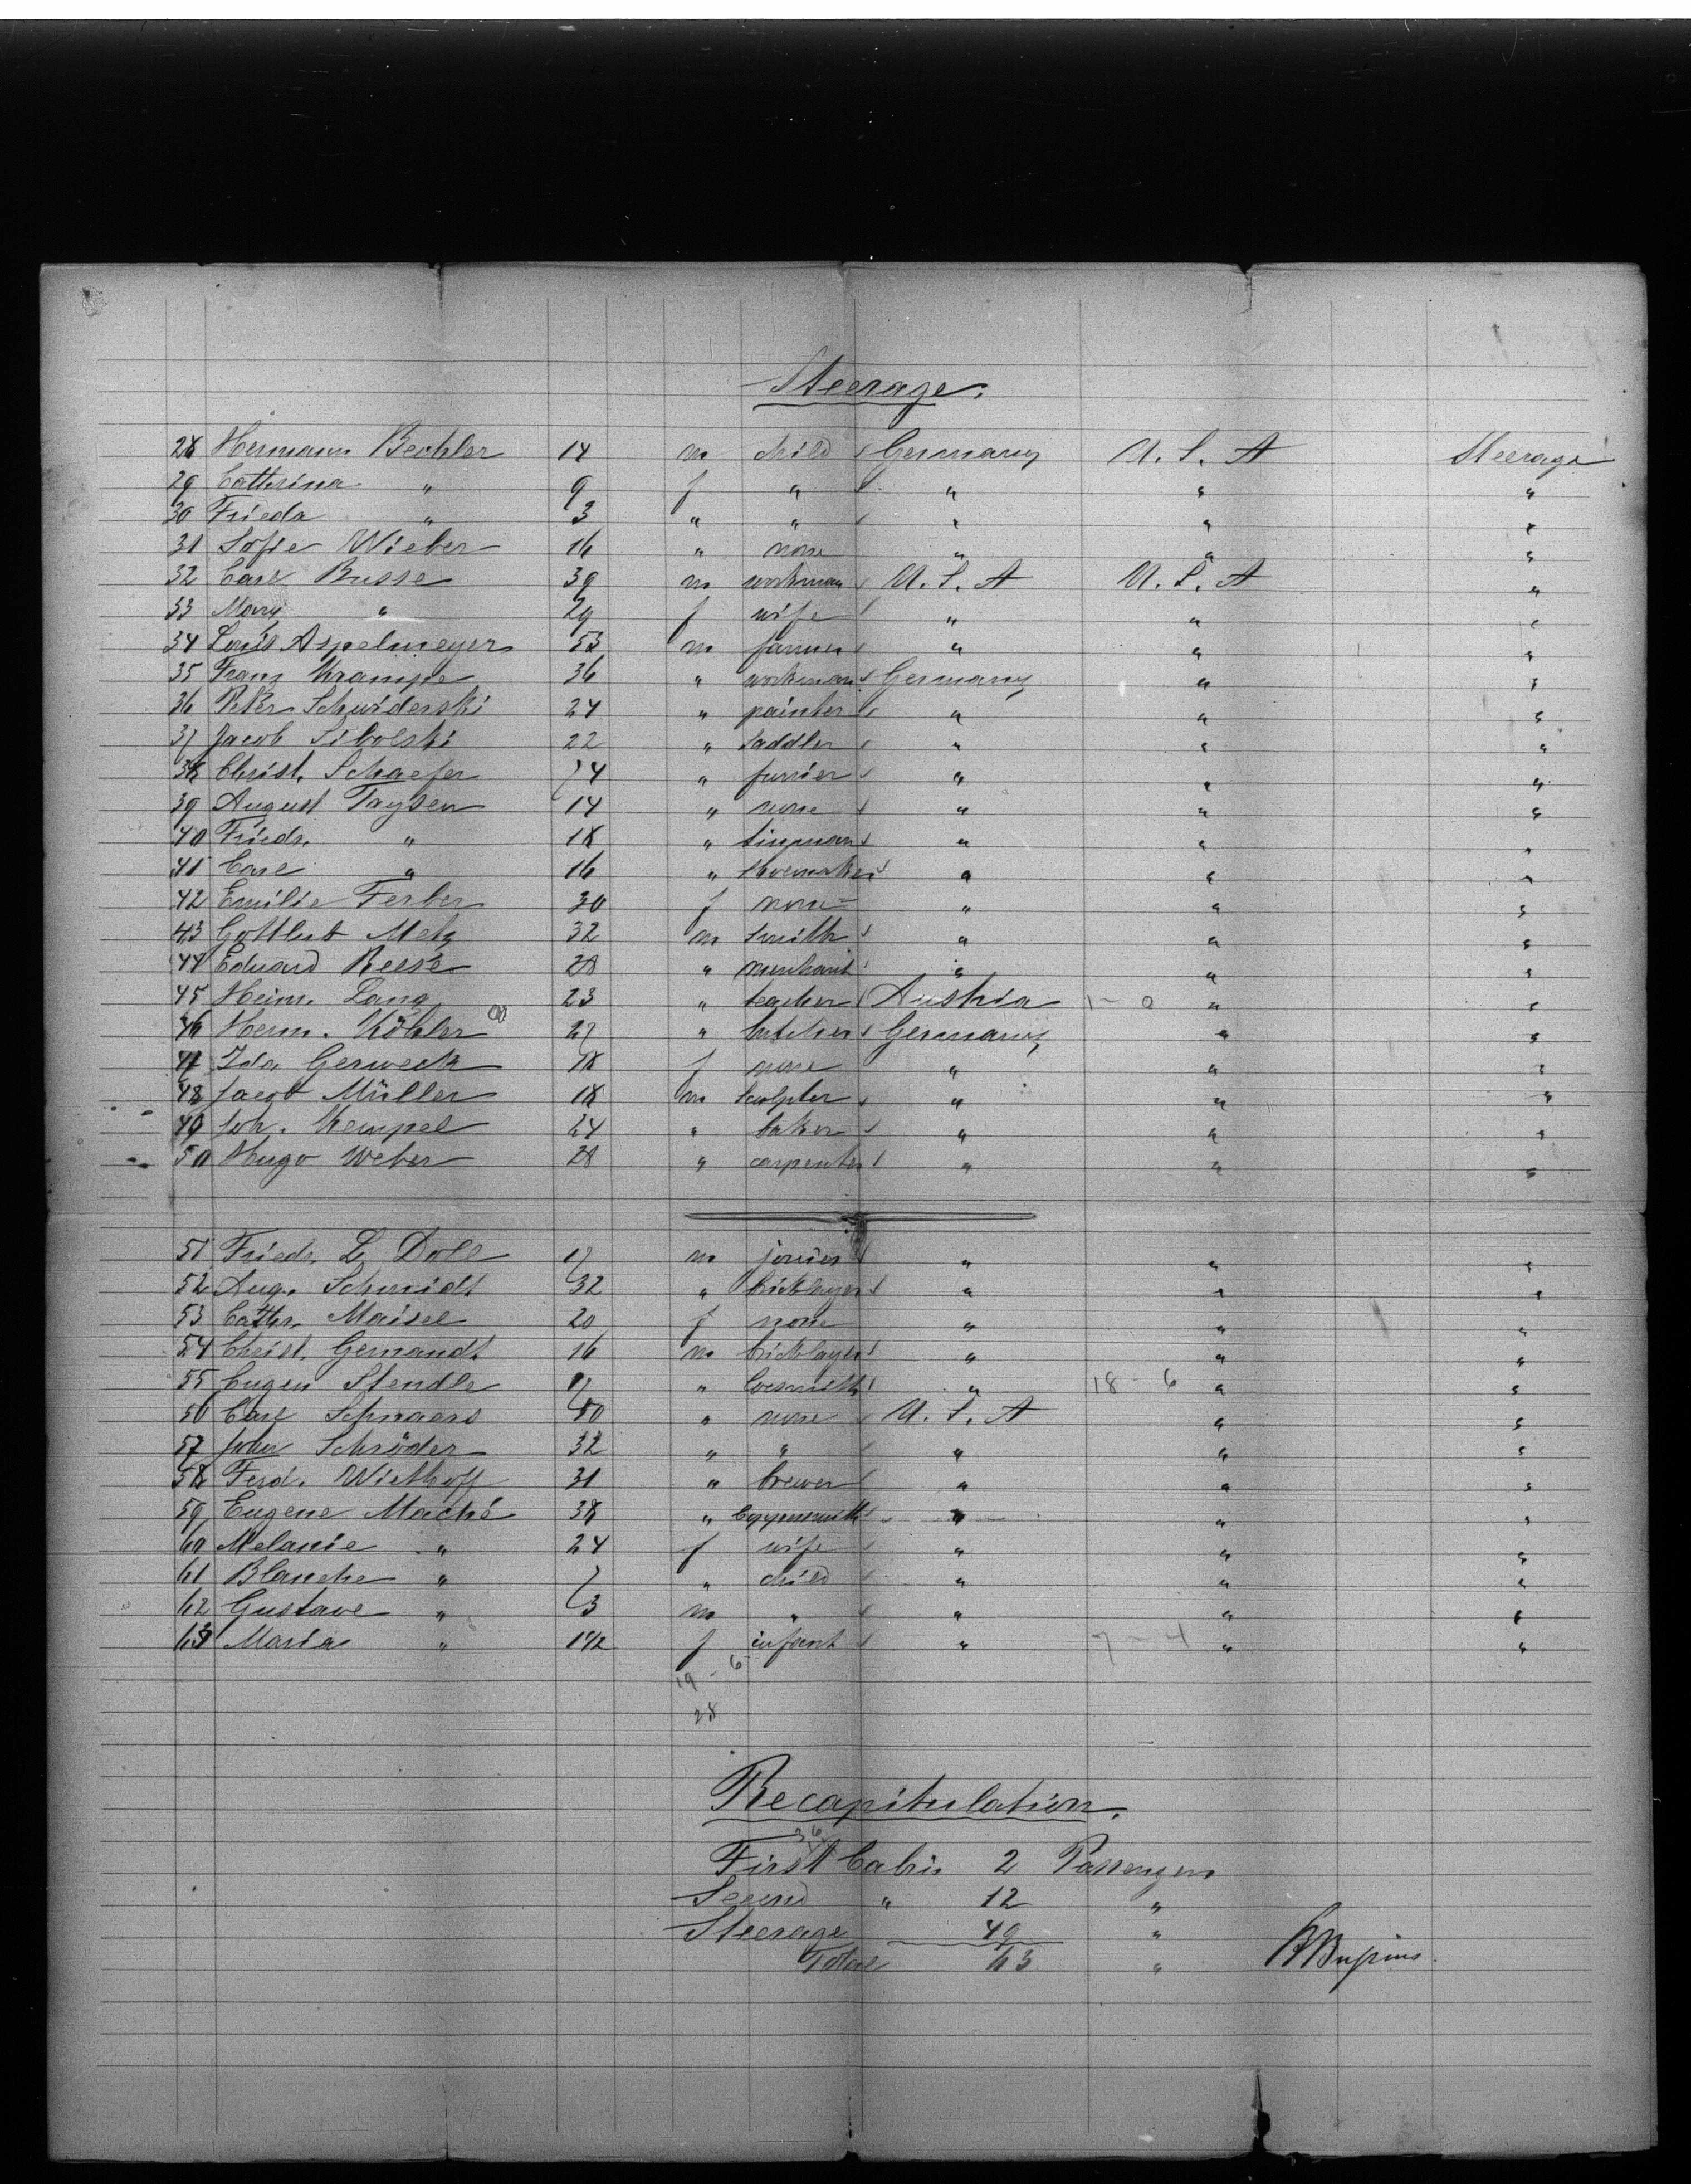 Steerage.
28 Hermann Bechler 14 m child Germany U. S. A Steerage
29 Cathrina " 9 f " " " "
30 Frieda " 3 " " " " "
31 Sofie Wieber 16 " none " " "
32 Carl Busse 39 m workman U. S. A U. S. A "
33 Mary " 29 f wife " " "
34 Louis Aspelmeyer 53 m farmer " " "
35 Franz Krampe 36 " workman Germany " "
36 Peter Schwiderski 24 " painter " " "
37 Jacob Sibolski 22 " saddler " " "
38 Christ. Schaefer 74 " furrier " " "
39 August Taysen 14 " none " " "
40 Friedr. " 18 " tinman " " "
41 Carl " 16 " shoemaker " " "
42 Emilie Ferber 30 f none " " "
43 Gottlieb Metz 32 m smith " " "
44 Eduard Reese 28 " merchant " " "
45 Heinr. Lang 23 " teacher Austria 1 - 0 " "
46 Herm. Köhler 27 " butcher Germany " "
47 Ida Gerweck 18 f none " " "
48 Jacob Müller 18 m sculpter " " "
49 Joh. Kempel 24 " baker " " "
50 Hugo Weber 28 " carpenter " " "
51 Friedr. L. Doll 17 m joiner " " "
52 Aug. Schmidt 32 " bricklayer " " "
53 Cathr. Maisel 20 f none " " "
54 Christ. Gernandt 16 m bricklayer " " "
55 Eugen Stendle 17 " locsmith " 18 - 6 " "
56 Carl Schnaers 50 " none U. S. A " "
57 John Schröder 32 " " " " "
58 Ferd. Wiethoff 31 " brewer " " "
59 Eugene Maché 38 " Coppersmith " " "
60 Melanie " 24 f wife " " "
61 Blanche " 7 " child " " "
62 Gustave " 3 m " " " "
63 Maria " 1 1/2 f infant " 7 - 4 " "
19 - 6
28
Recapitulation.
36
First Cabin 2 Passengers
Second " 12 "
Steerage 49 "
Total 63 "